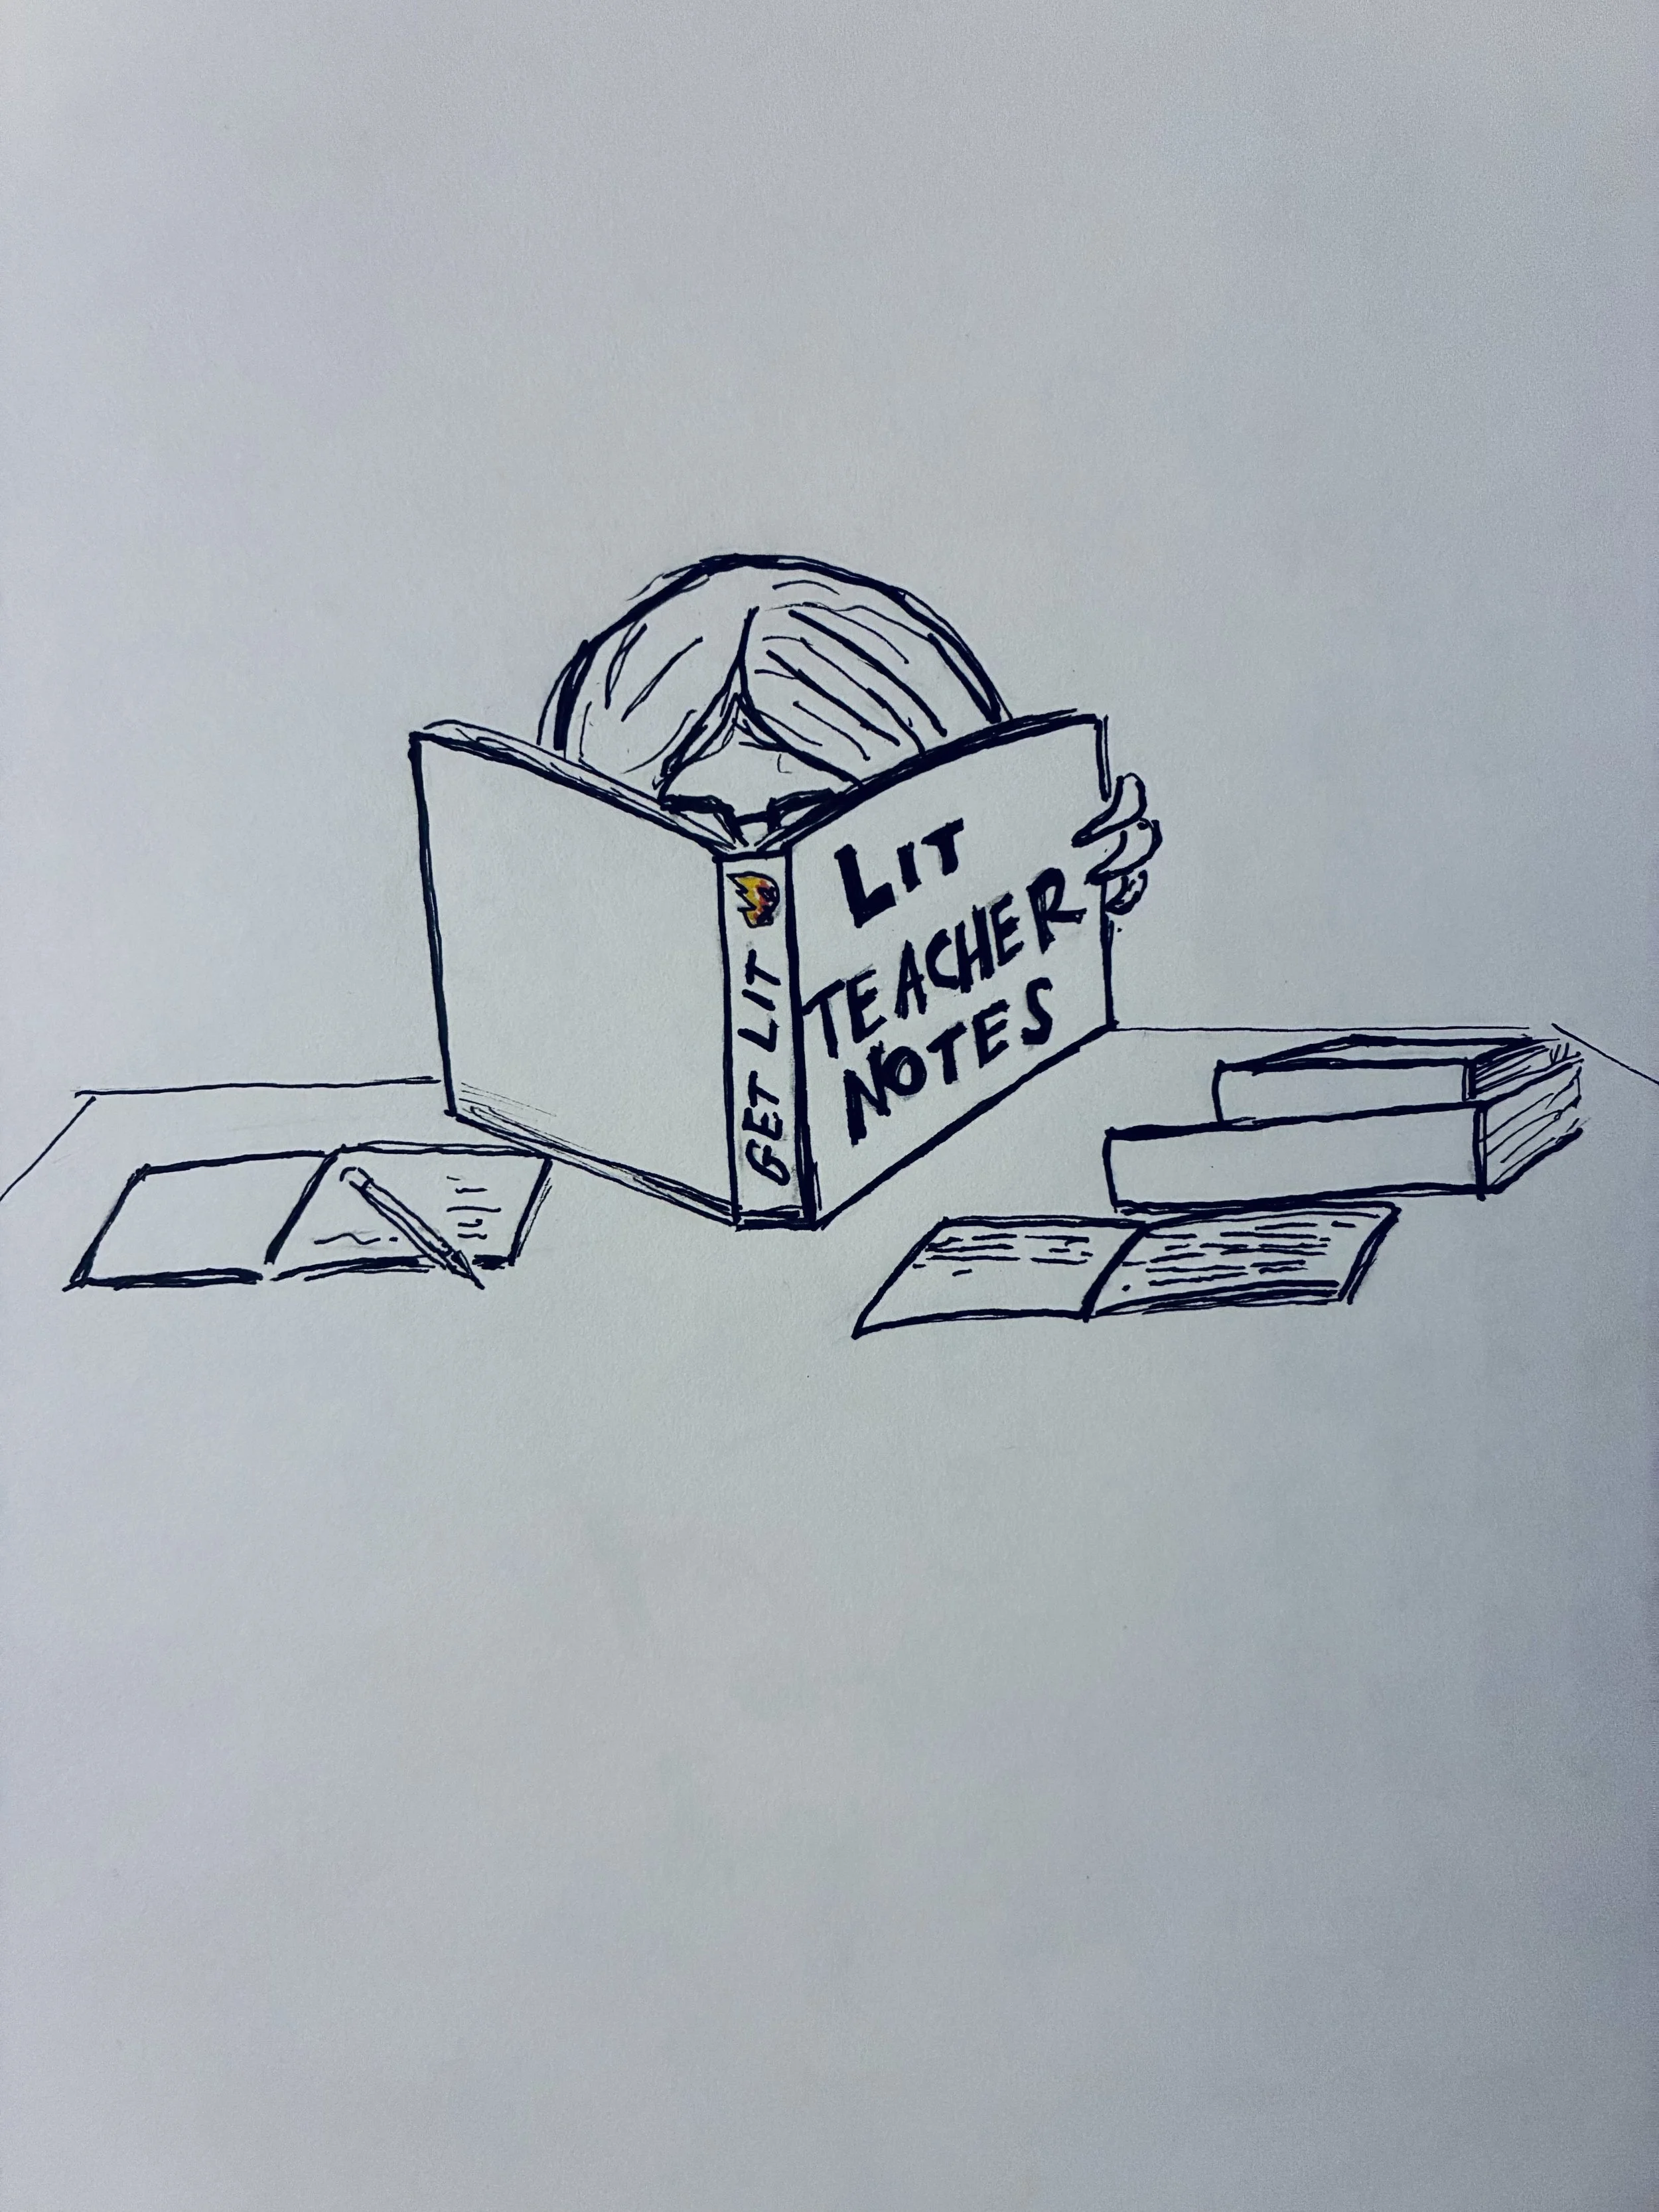 LIT
TEACHER
NOTES
GET LIT